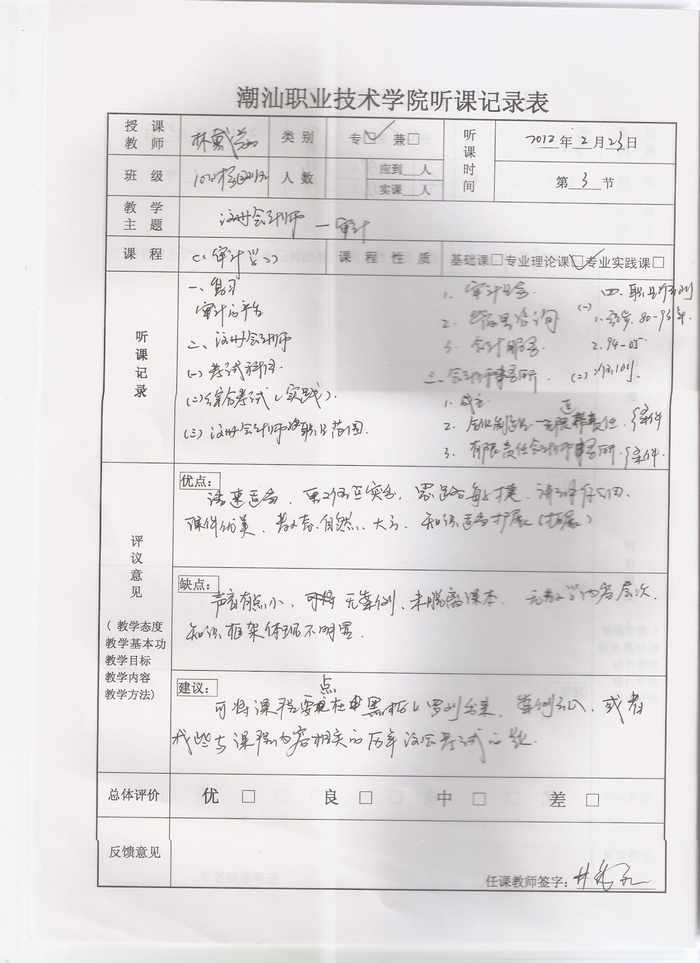 潮汕职业技术学院听课记录表
授课教师 林 类别 专☑ 兼□ 听课时间 2012年2月23日
班级 人数 应到 人 实课 人 第 3 节
教学主题 注册会计师—审计
课程 《审计学》 课程性质 基础课□专业理论课☑专业实践课□
听课记录
一、复习
审计的平台
二、注册会计师
(一)考试科目
(二)综合考试(实践)
(三)注册会计师的职业范围
1. 审计业务
2. 咨询
3. 会计服务
三、会计师事务所
1. 成立
2. 责任 条件
3. 有限责任会计师事务所 条件
四、
(一)
1. 80-93年
2. 94-05
(二)
评议意见
(教学态度
教学基本功
教学目标
教学内容
教学方法)
优点:
语速适当、思路敏捷、
课件优美、教态自然、大方、知识适当扩展(拓展)
缺点:
声音有点小、无案例、未脱离课本、内容层次、
知识框架体现不明显.
建议:
可将课程要点在黑板上罗列出来、案例 、或者
找些与课程内容相关的历年注会考试的题.
总体评价 优 □ 良 □ 中 □ 差 □
反馈意见
任课教师签字: